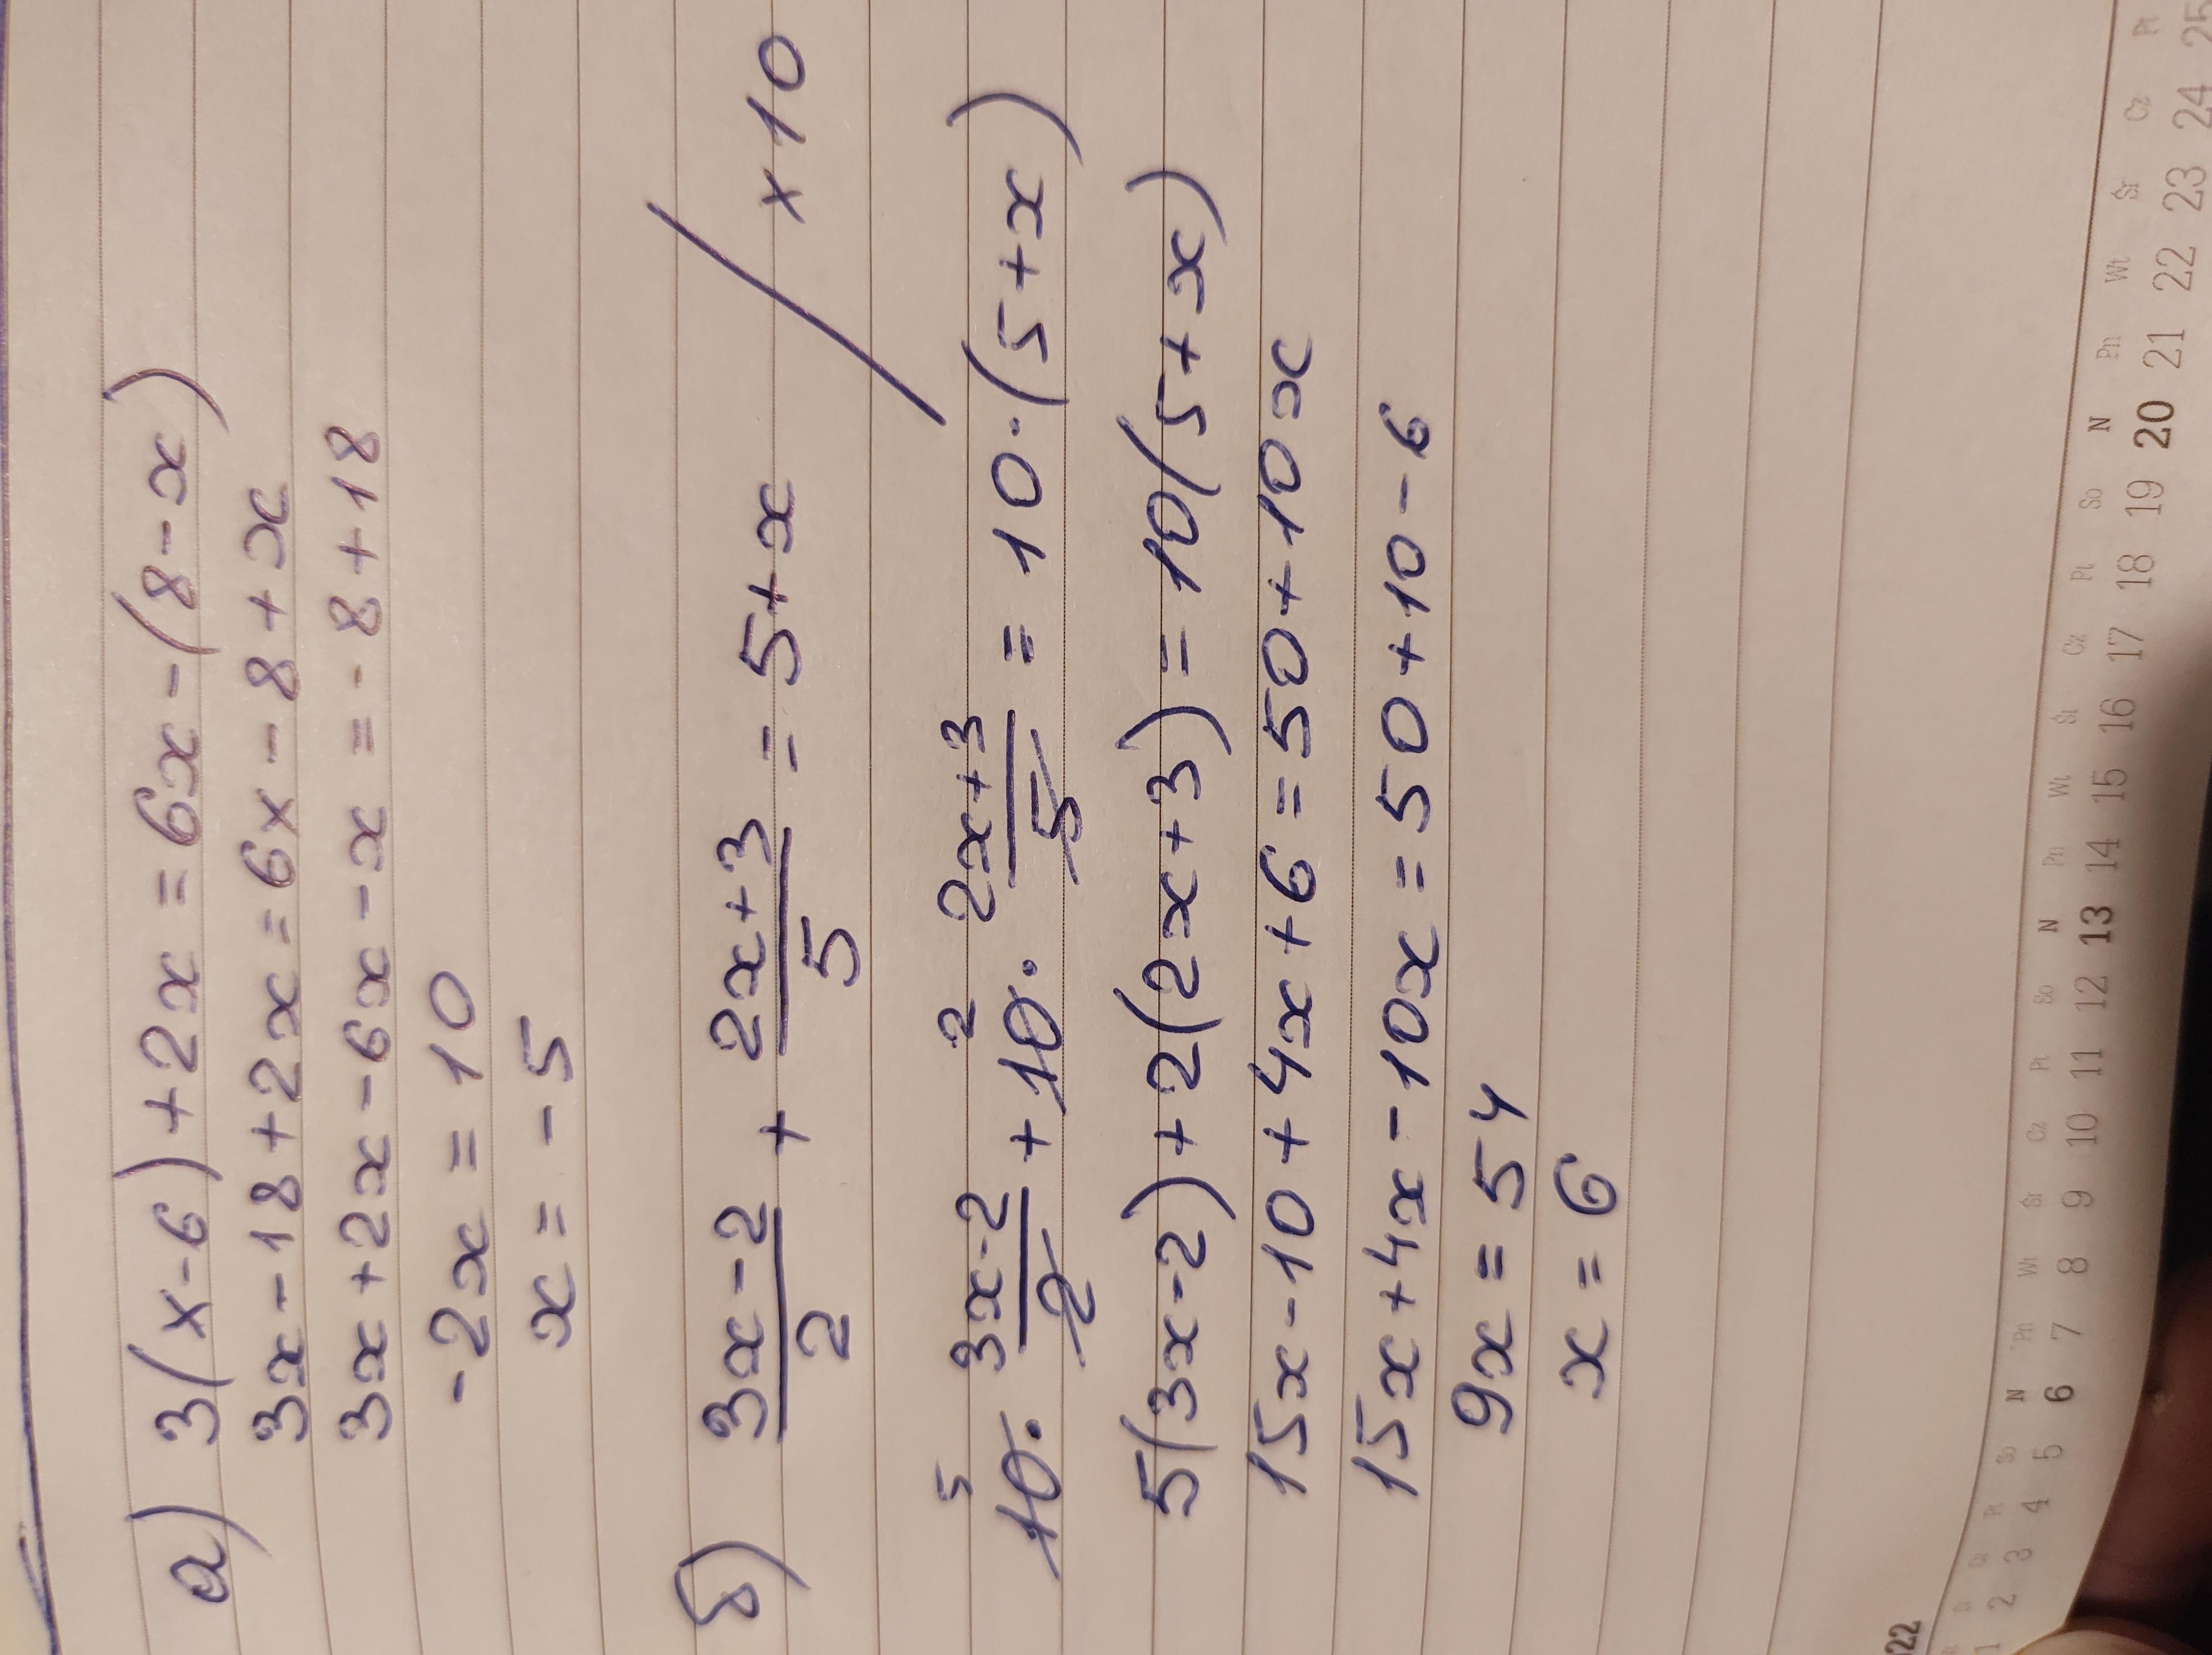 а) 3(x-6)+2x = 6x-(8-x)
3x-18+2x=6x-8+x
3x+2x-6x-x = -8+18
-2x = 10
x = -5
б) (3x-2)/2 + (2x+3)/5 = 5+x / ×10
5 2
10· (3x-2)/2 + 10· (2x+3)/5 = 10·(5+x)
5(3x-2)+2(2x+3)=10(5+x)
15x-10+4x+6=50+10x
15x+4x-10x=50+10-6
9x=54
x=6
22
Pn Wt Śr Cz Pt So N Pn Wt Śr Cz Pt So N Pn Wt Śr Cz Pt
1 2 3 4 5 6 7 8 9 10 11 12 13 14 15 16 17 18 19 20 21 22 23 24 25